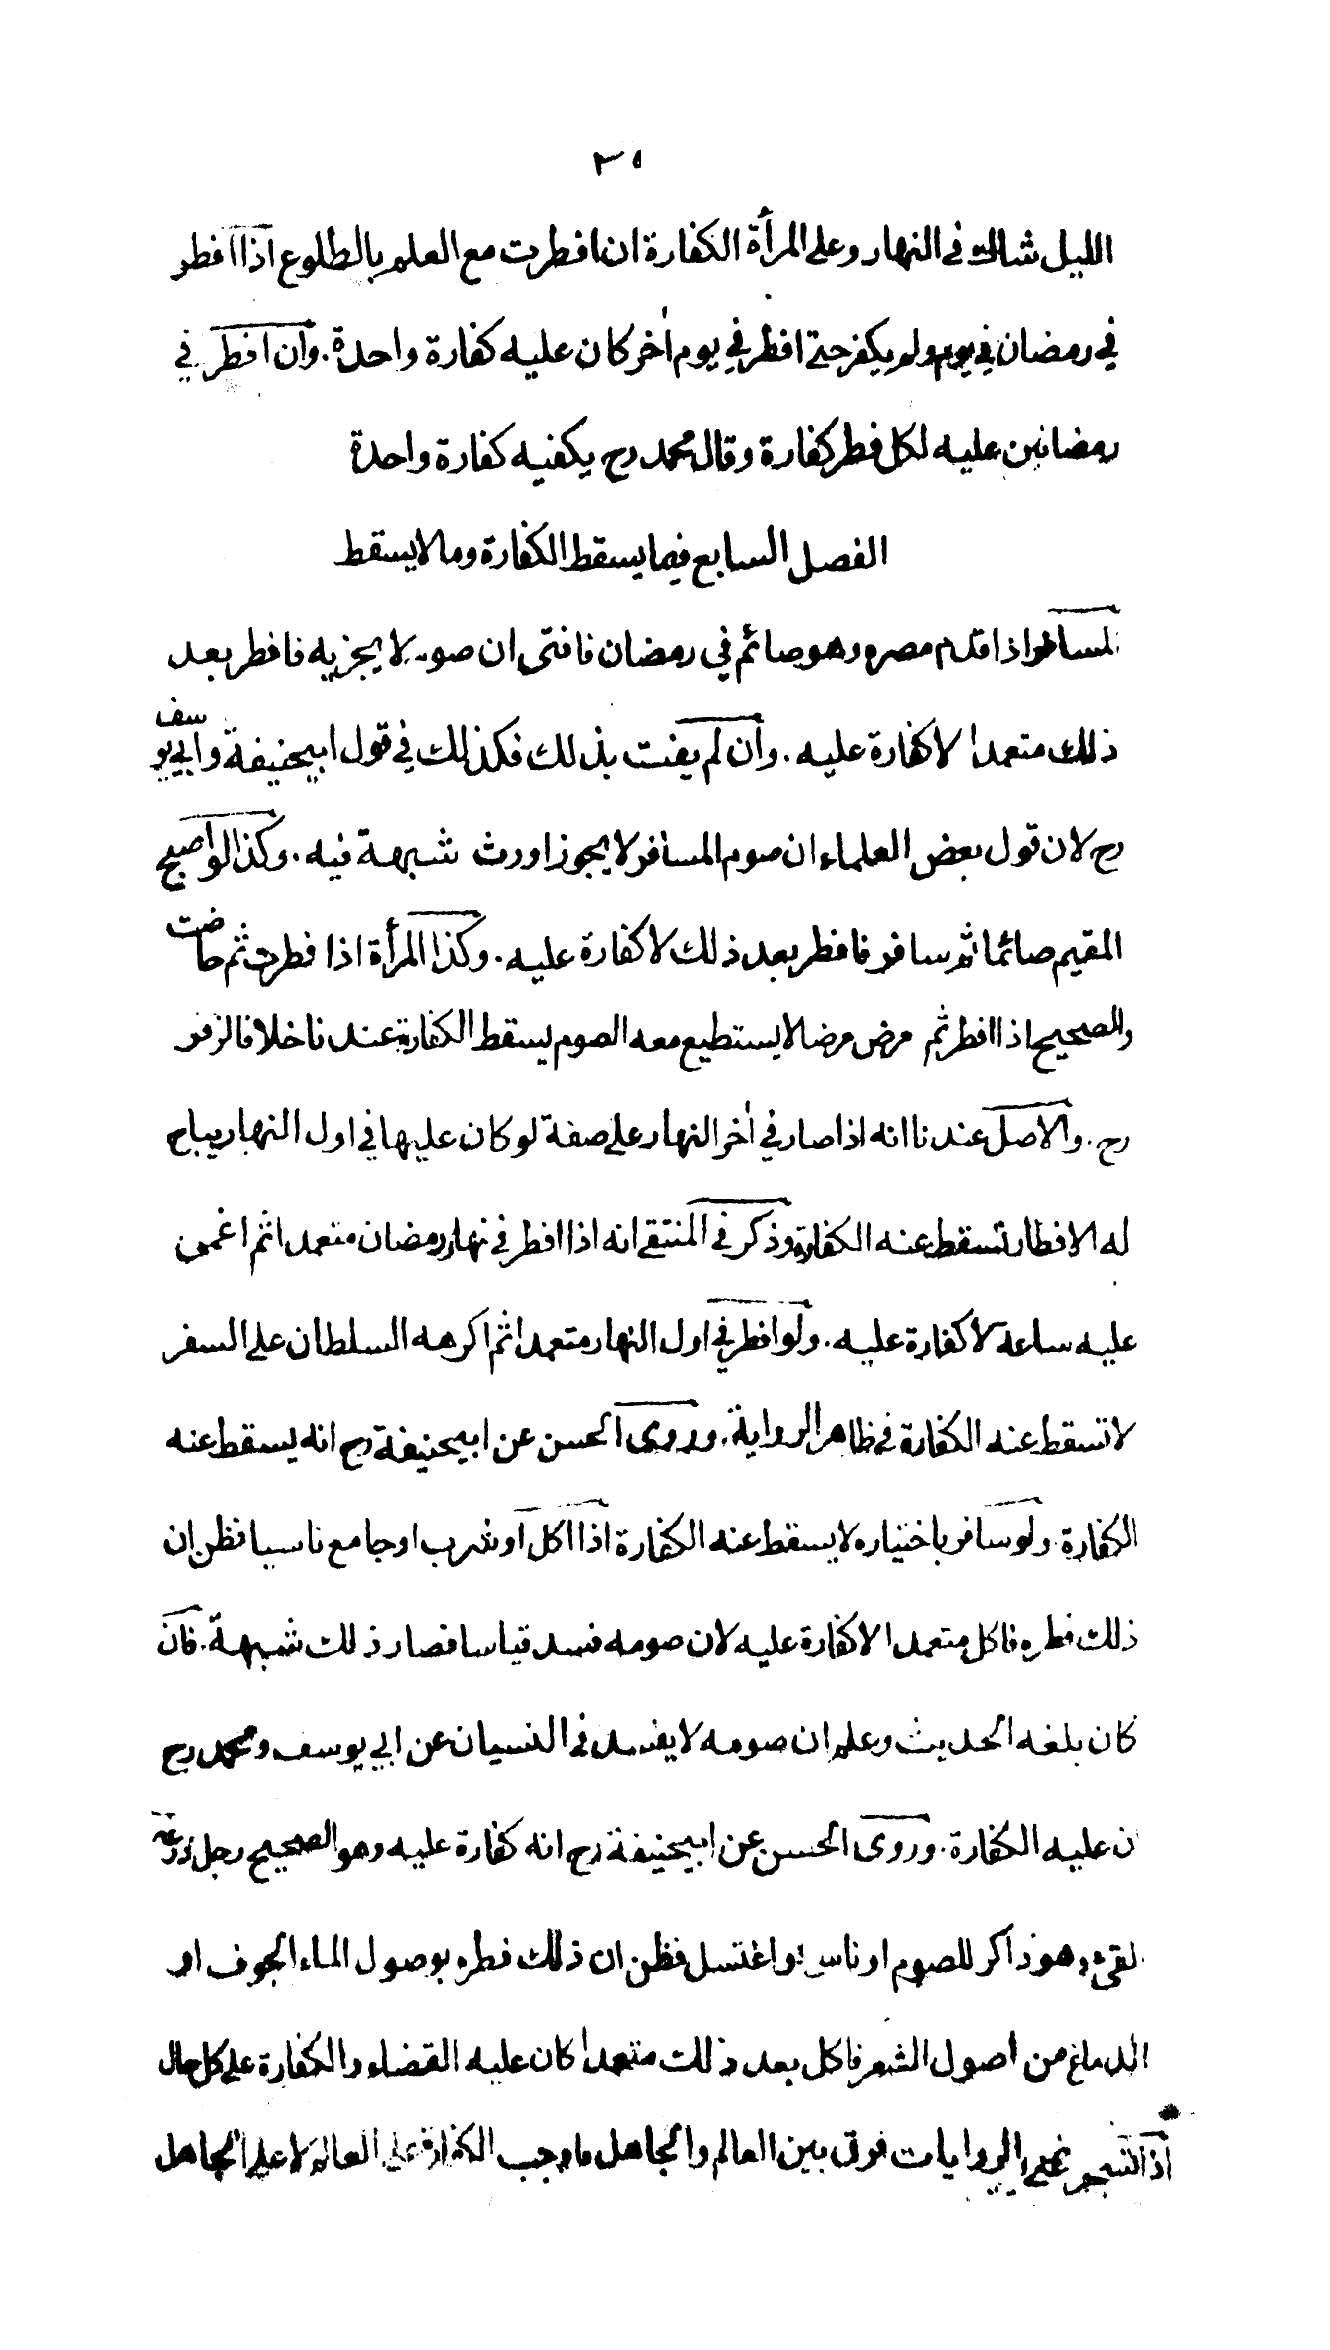 الليل شاك في النهار وعلى المرأة الكفارة ان افطرت مع العلم بالطلوع اذا افطر
في رمضان في يوم ولم يكفر حتى افطر في يوم أخر كان عليه كفارة واحدة. وان افطر في
رمضانين عليه لكل فطر كفارة وقال محمد رح يكفيه كفارة واحدة
الفصل السابع فيما يسقط الكفارة وما لا يسقط
لمسافر اذا قدم مصره وهو صائم في رمضان فافتى ان صومه لا يجزيه فافطر بعد
ذلك متعمدا لا كفارة عليه. وان لم يفت بذلك فكذلك في قول ابيحنيفة وابي يوسف
رح لان قول بعض العلماء ان صوم المسافر لا يجوز اورث شبهة فيه. وكذا لو اصبح
المقيم صائما ثم سافر فافطر بعد ذلك لا كفارة عليه. وكذا المرأة اذا فطرت ثم حاضت
والصحيح اذا افطر ثم مرض مرضا لا يستطيع معه الصوم يسقط الكفارة عندنا خلافا لزفر
رح. والاصل عندنا انه اذا صار في أخر النهار على صفة لو كان عليها في اول النهار يباح
له الافطار تسقط عنه الكفارة وذكر في المنتقى انه اذا افطر في نهار رمضان متعمدا ثم اغمى
عليه ساعة لا كفارة عليه. ولو افطر في اول النهار متعمدا ثم اكرهه السلطان على السفر
لا تسقط عنه الكفارة في ظاهر الرواية. وروى الحسن عن ابيحنيفة رح انه يسقط عنه
الكفارة. ولو سافر باختياره لا يسقط عنه الكفارة اذا اكل او شرب او جامع ناسيا فظن ان
ذلك فطره فاكل متعمدا لا كفارة عليه لان صومه فسد قياسا فصار ذلك شبهة. فان
كان بلغه الحديث وعلم ان صومه لا يفسد في النسيان عن ابي يوسف ومحمد رح
ان عليه الكفارة. وروى الحسن عن ابيحنيفة رح انه كفارة عليه وهو الصحيح رجل ذرعه
لقئ وهو ذاكر للصوم او ناس او اغتسل فظن ان ذلك فطره بوصول الماء الجوف او
الدماغ من اصول الشعر فاكل بعد ذلك متعمدا كان عليه القضاء والكفارة على كل حال
الروايات فرق بين العالم والجاهل فاوجب الكفارة على العالم لا على الجاهل